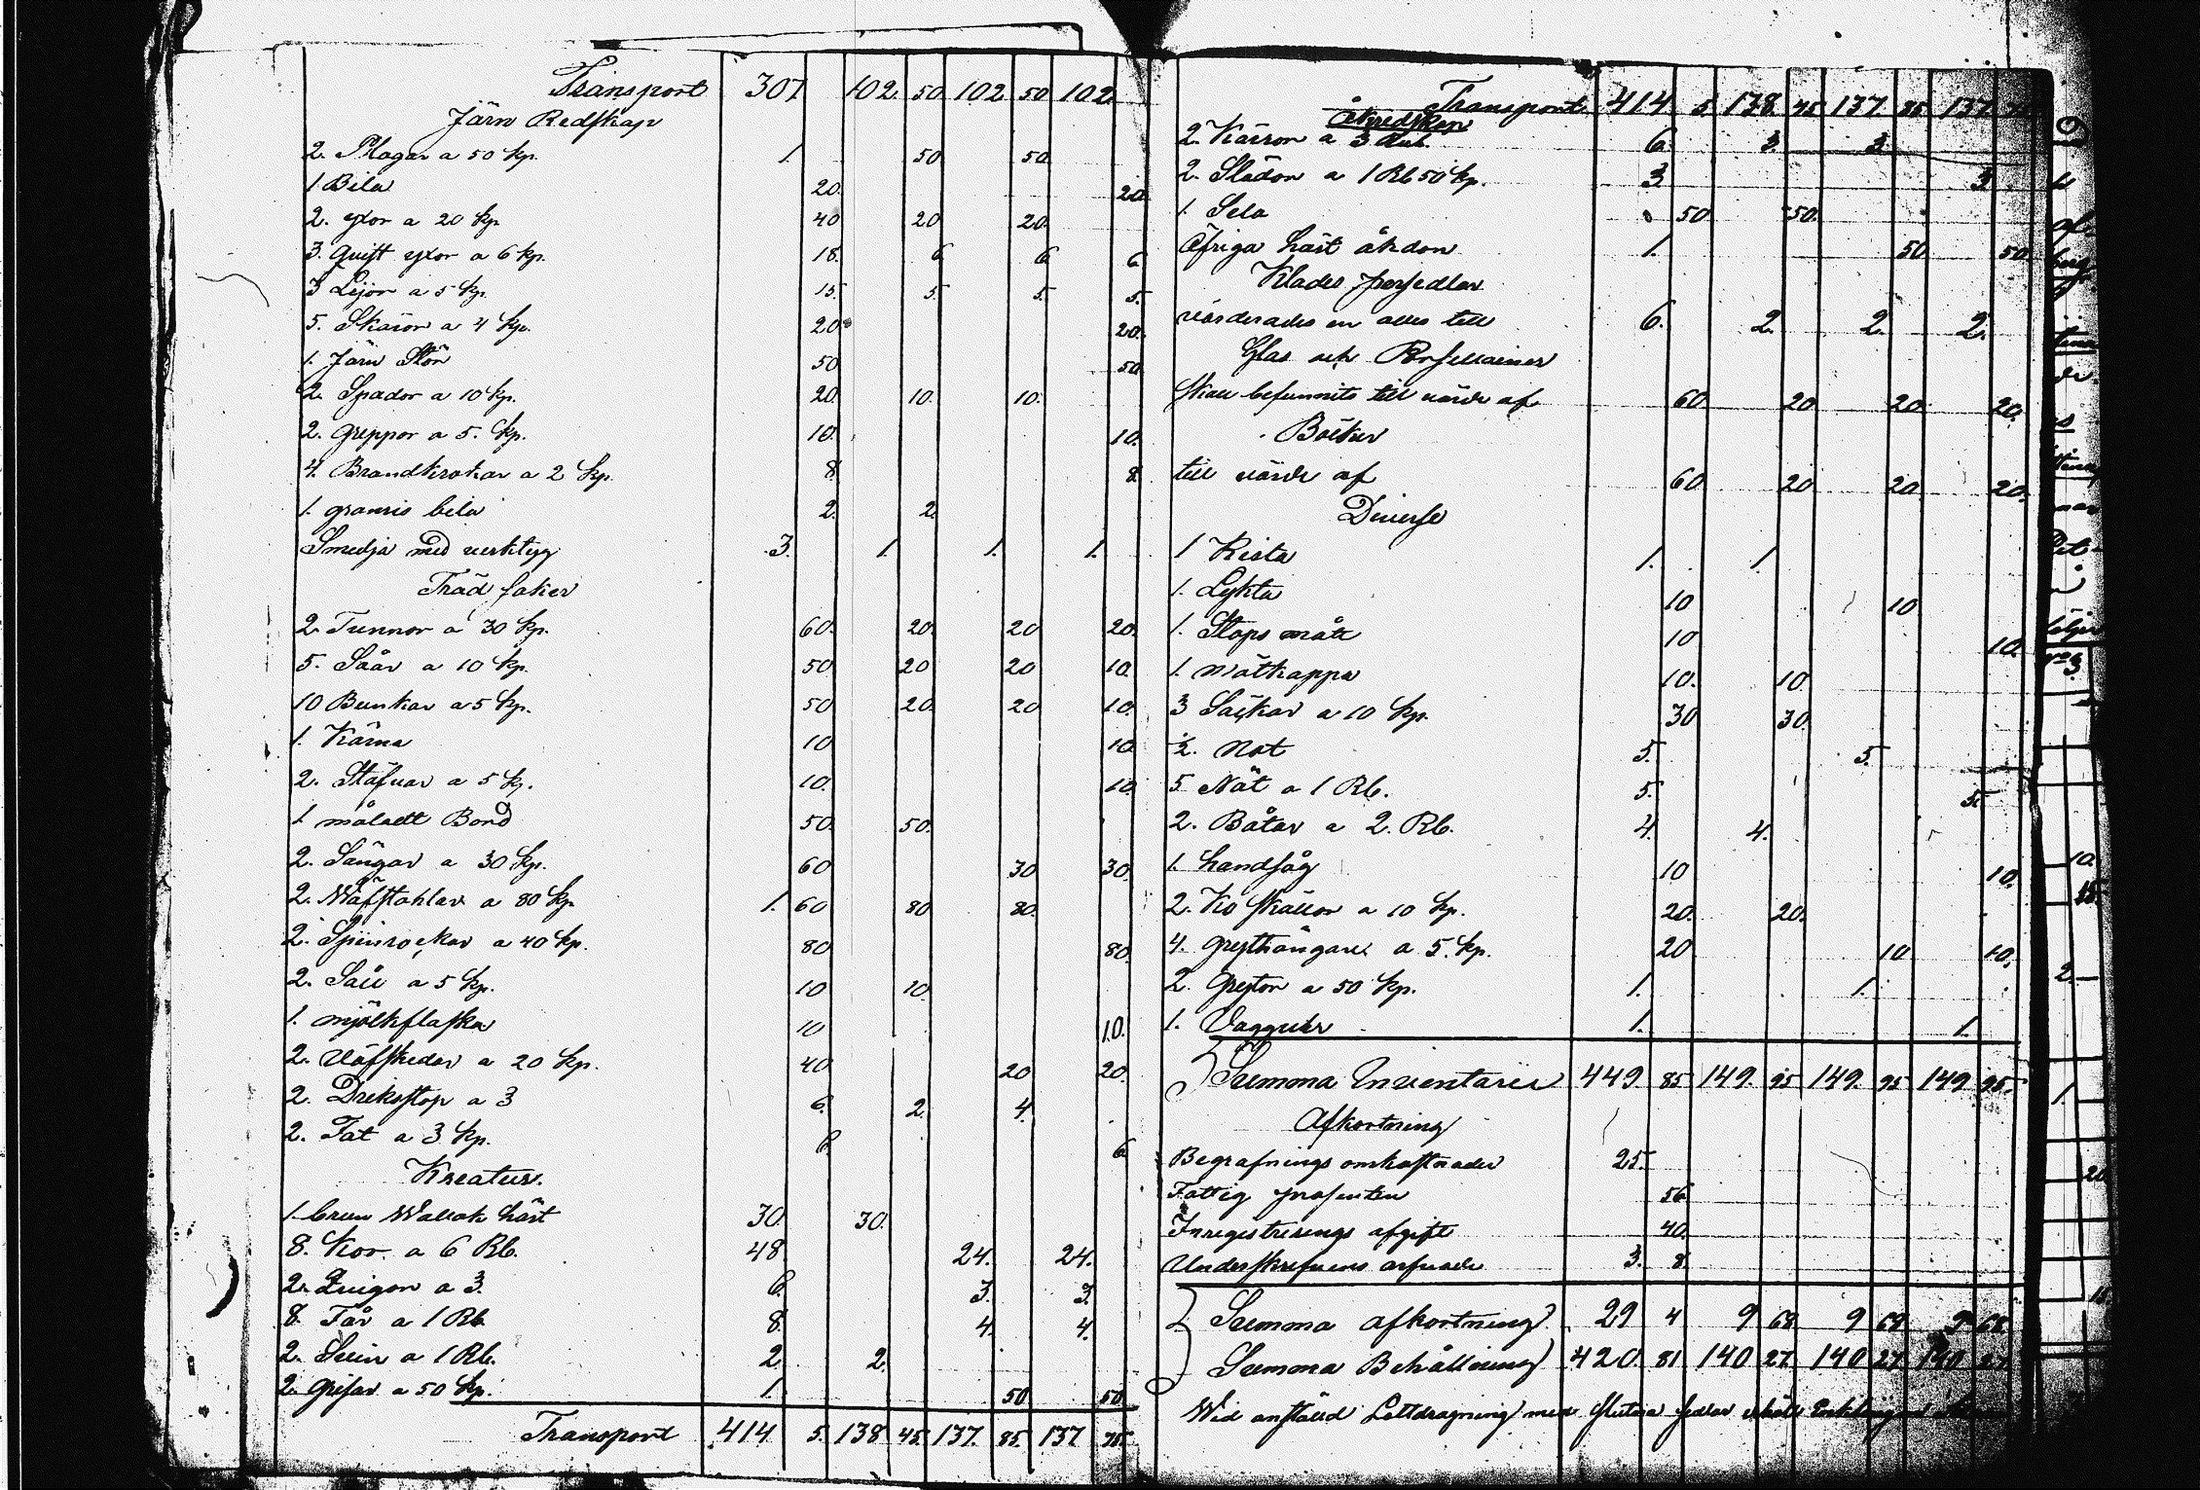 Transport 307 102 50 102 50 102
Järn Redskap
2. Plogar a 50 kp. 1. 50 50
1 Bila 20. 20.
2. yxor a 20 kp 40 20 20.
3. quist yxor a 6 kp. 18. 6 6 6
3 Lijor a 5 kp. 15. 5. 5. 5.
5. Skäror a 4 kp. 20 20.
1. Järn Stör 50 50
2. Spador a 10 kp. 20. 10. 10.
2. Greppor a 5. kp. 10. 10.
4. Brandkrokar a 2 kp. 8 8
1. granris bila 2. 2.
Smedja med verktyg 3. 1. 1. 1.
Träd saker
2. Tunnor a 30 kp. 60. 20. 20 20.
5. Såår a 10 kp. 50. 20 20 10.
10 Bunkar a 5 kp. 50 20. 20 10.
1. Kärna 10 10.
2. Stäfvar a 5 kp. 10. 10.
1 måladt Bord 50. 50.
2. Sängar a 30 kp. 60 30 30.
2. Wäfstohlar a 80 kp. 1. 60 80 80.
2. Spinrockar a 40 kp. 80 80.
2. Såll a 5 kp. 10 10.
1. mjölkflaska 10 10.
2. Väfskedar a 20 kp. 40 20 20.
2. Drikstop a 3 6. 2. 4.
2. Fat a 3 kp. 6. 6
Kreatur.
1. brun Wallak häst 30. 30.
8. Kor a 6 Rb. 48 24. 24.
2. Quigor a 3. 6. 3. 3.
8. Får a 1 Rb 8. 4. 4.
2. Svin a 1 Rb. 2 2.
2. Grisar a 50 kp. 1. 50 50.
Transport 414 5. 138 45. 137. 85. 137 75.
Transport 414 5. 138. 45 137. 85. 137
Åkredskap
2. Kärror a 3 Rub. 6. 3. 3.
2. Slädor a 1 Rb 50 kp. 3. 3.
1. Sela 50 50.
Öfriga häst åkdon 1. 50 50
Klädes persedlar
värderades en alles till 6. 2. 2. 2.
Glas och Porsellainer
Skall befunnits till värde af 60 20 20. 20.
Böcker
till värde af 60 20 20 20.
Diverse
1 Kista 1. 1.
1. Lykta 10 10.
1. Stops mått 10 10.
1. Mätkappa 10. 10.
3 Säckar a 10 kp. 30 30.
½. Not 5. 5.
5 Nät a 1 Rb. 5. 5.
2. Båtar a 2. Rb. 4. 4.
1. handsåg 10 10.
2. Ko skällor a 10 kp. 20. 20.
4. grythängare a 5. kp. 20 10 10.
2. Grytor a 50 kp. 1. 1.
1. Vagguhr 1. 1.
Summa Inventarier 449 85 149. 95 149. 95 149 95.
Afkortning
Begrafnings omkostnader 25.
Fattig prosenten 56
Inregistrerings afgift 40.
Underskrefvens arfvode 3. 8.
Summa afkortning 29 4 9 68. 9 68 9 68.
Summa Behållning 420. 81 140 27. 140 27 140 27
Wid anstäld Lottdragning med slutna sedlar